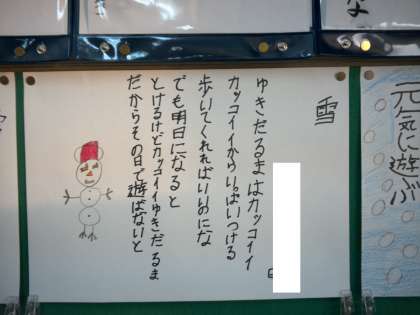 雪
ゆきだるまはカッコイイ
カッコイイからいっぱいつける
歩いてくれればいいのにな
でも明日になると
とけるけどカッコイイゆきだるま
だからその日で遊ばないと
元気に遊ぶ